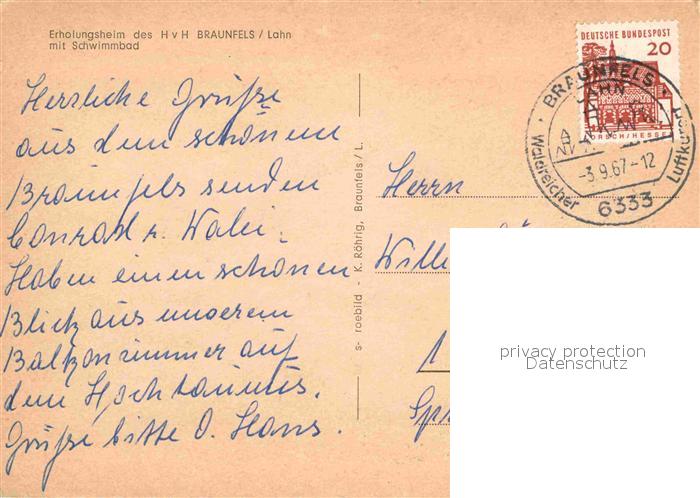 Erholungsheim des H v H BRAUNFELS / Lahn
mit Schwimmbad
Herzliche Grüße
aus dem schönen
Braunfels senden
Conrad u.
Haben einen schönen
Blick aus unserem
Balkonzimmer auf
den Hochtaunus.
Grüße bitte O. Hans.
s- roebild - K. Röhrig, Braunfels / L.
DEUTSCHE BUNDESPOST
20
LORSCH/HESSEN
BRAUNFELS
LAHN
-3.9.67-12
Waldreicher Luftkurort
6333
Herrn
Willi
1
privacy protection
Datenschutz